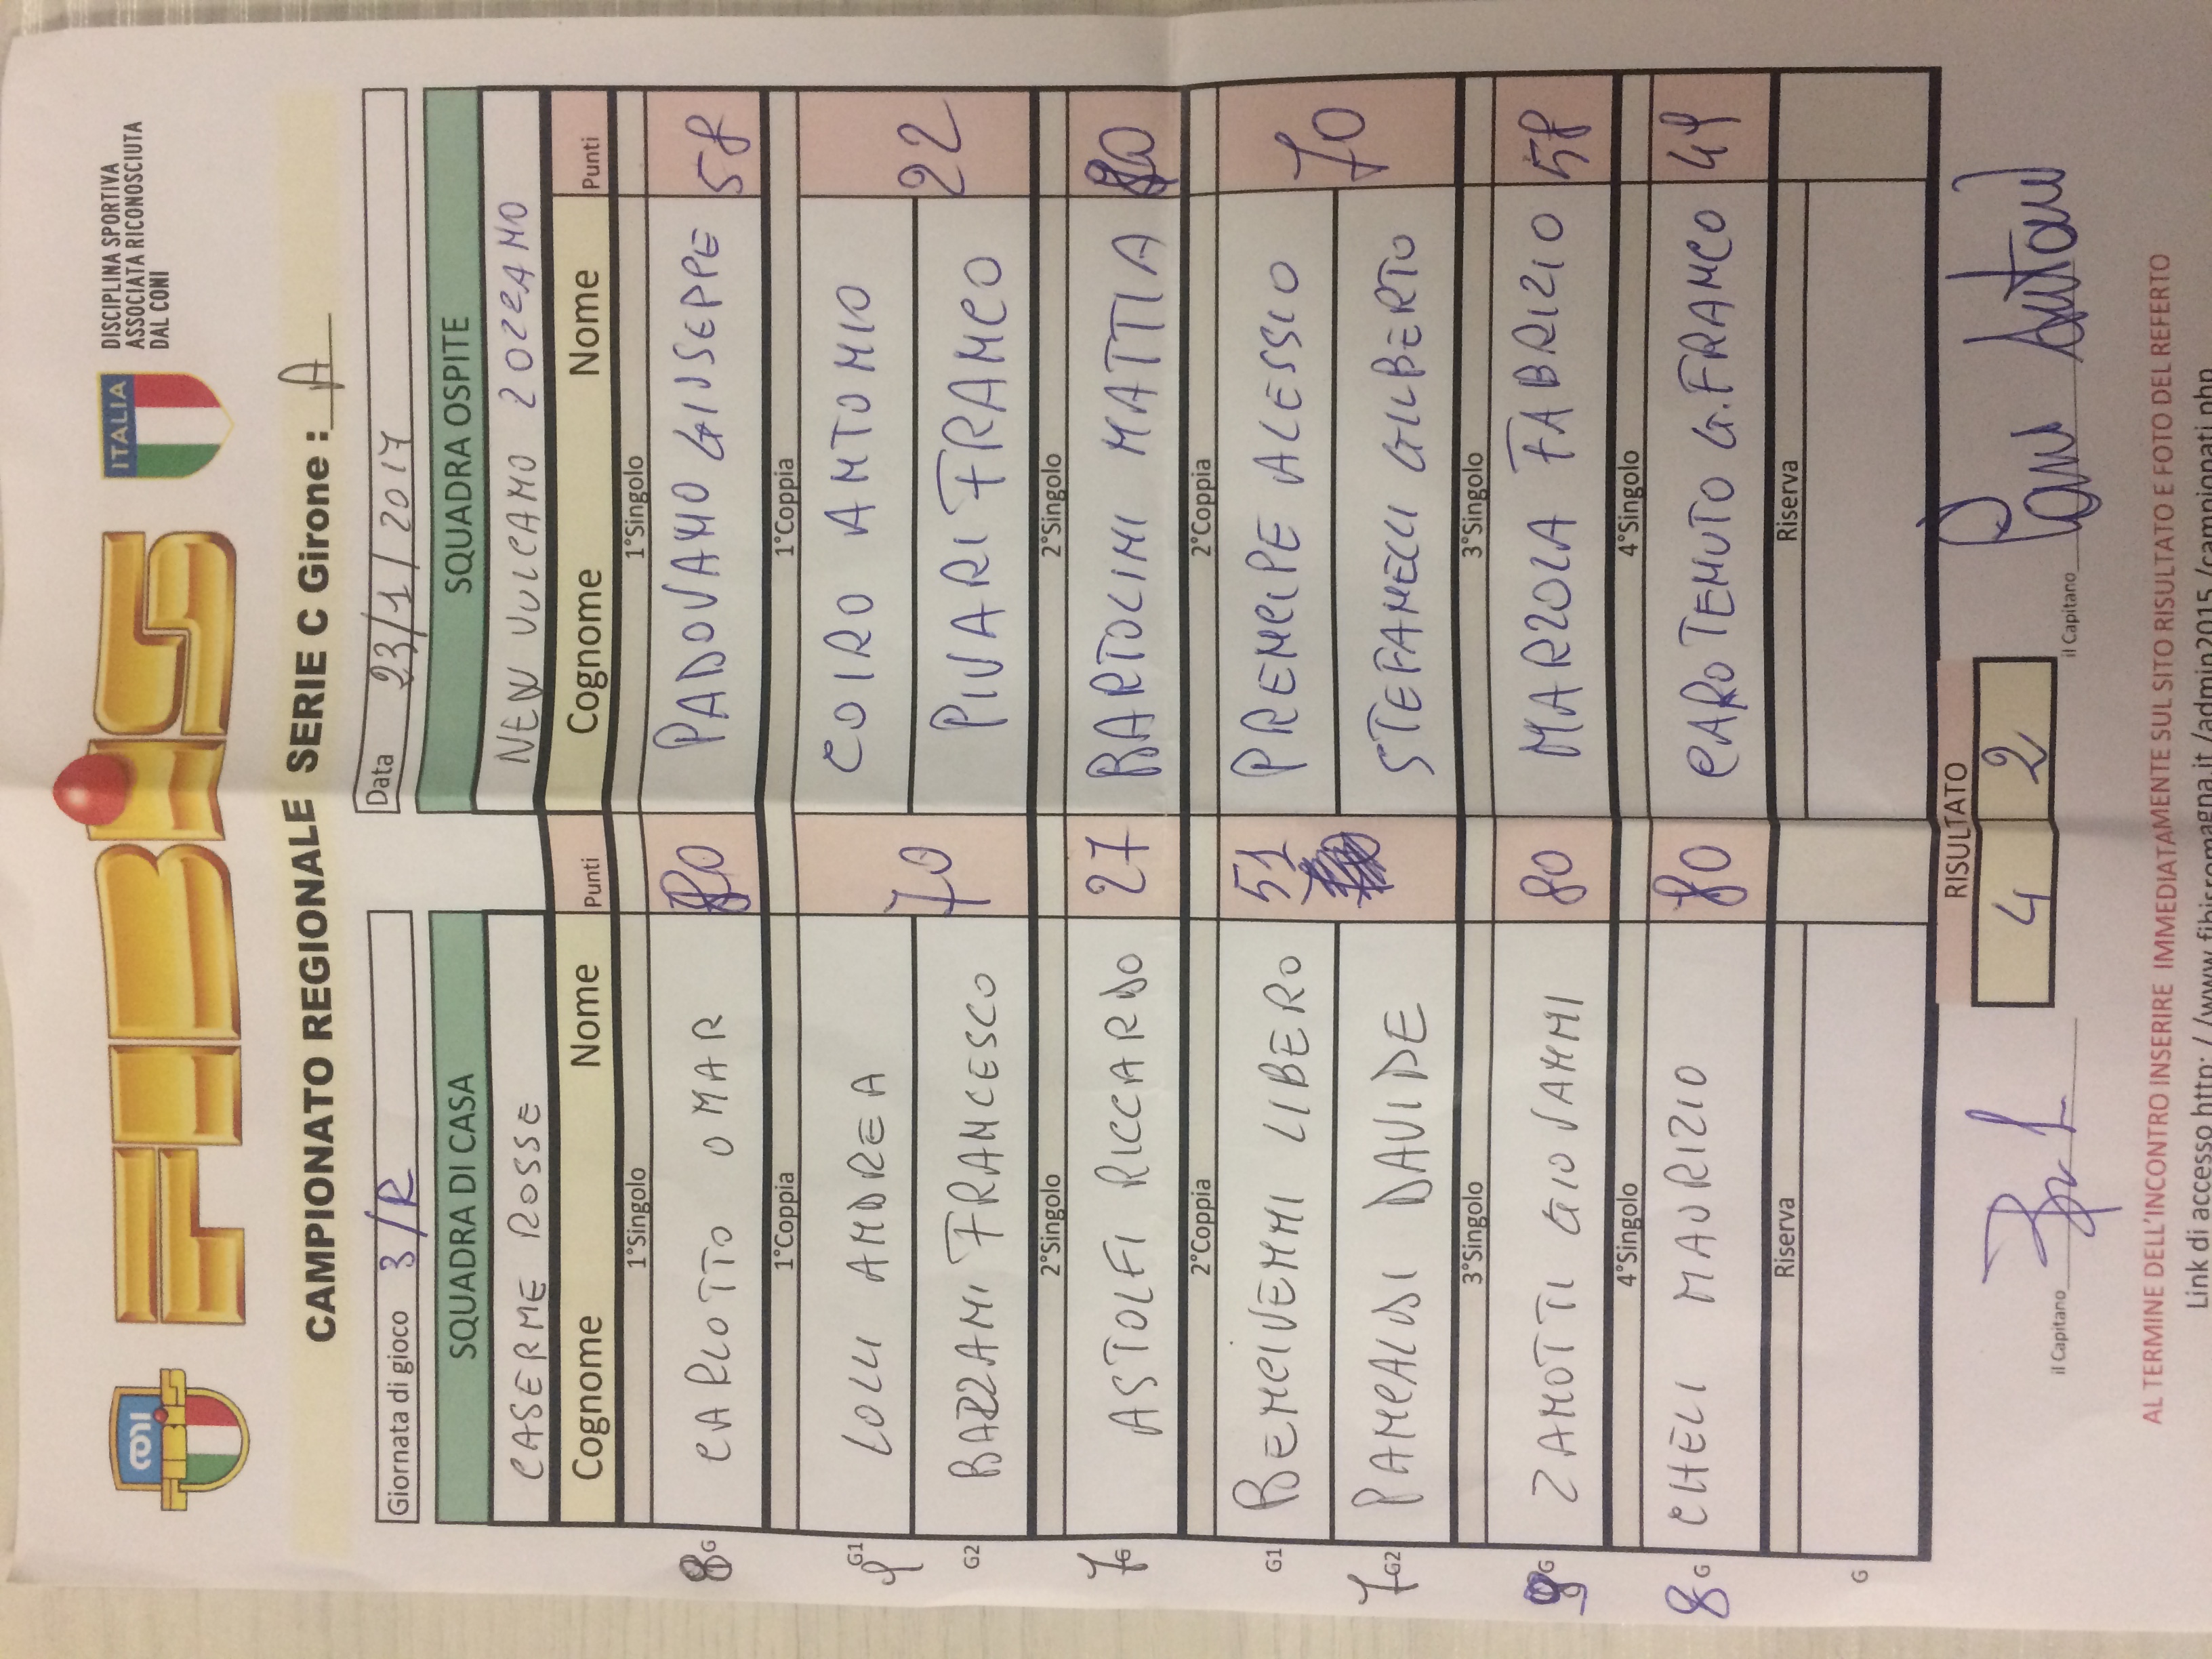 FIBiS
ITALIA
DISCIPLINA SPORTIVA
ASSOCIATA RICONOSCIUTA
DAL CONI
CAMPIONATO REGIONALE SERIE C Girone : A
Giornata di gioco 3/R Data 23/1/2017
SQUADRA DI CASA SQUADRA OSPITE
CASERME ROSSE NEW VULCANO ZOZZANO
Cognome Nome Punti Cognome Nome Punti
1°Singolo 1°Singolo
8 G CARLOTTO OMAR 80 PADOVANO GIUSEPPE 58
1°Coppia 1°Coppia
G1 LOLLI ANDREA 70 COIRO ANTONIO 22
9 G2 BAZZANI FRANCESCO PIVARI FRANCO
2°Singolo 2°Singolo
7 G ASTOLFI RICCARDO 27 BARTOLINI MATTIA 80
2°Coppia 2°Coppia
G1 BENCIVENNI LIBERO 51 PRENCIPE ALESSIO 70
7 G2 PANCALDI DAVIDE STEFANELLI GILBERTO
3°Singolo 3°Singolo
9 G ZANOTTI GIOVANNI 80 MARZOLA FABRIZIO 58
4°Singolo 4°Singolo
8 G CHELI MAURIZIO 80 CAROTENUTO G.FRANCO 49
Riserva Riserva
G
RISULTATO
il Capitano 4 2 il Capitano
AL TERMINE DELL'INCONTRO INSERIRE IMMEDIATAMENTE SUL SITO RISULTATO E FOTO DEL REFERTO
Link di accesso http://www.fibisromagna.it/admin2015/campionati.php